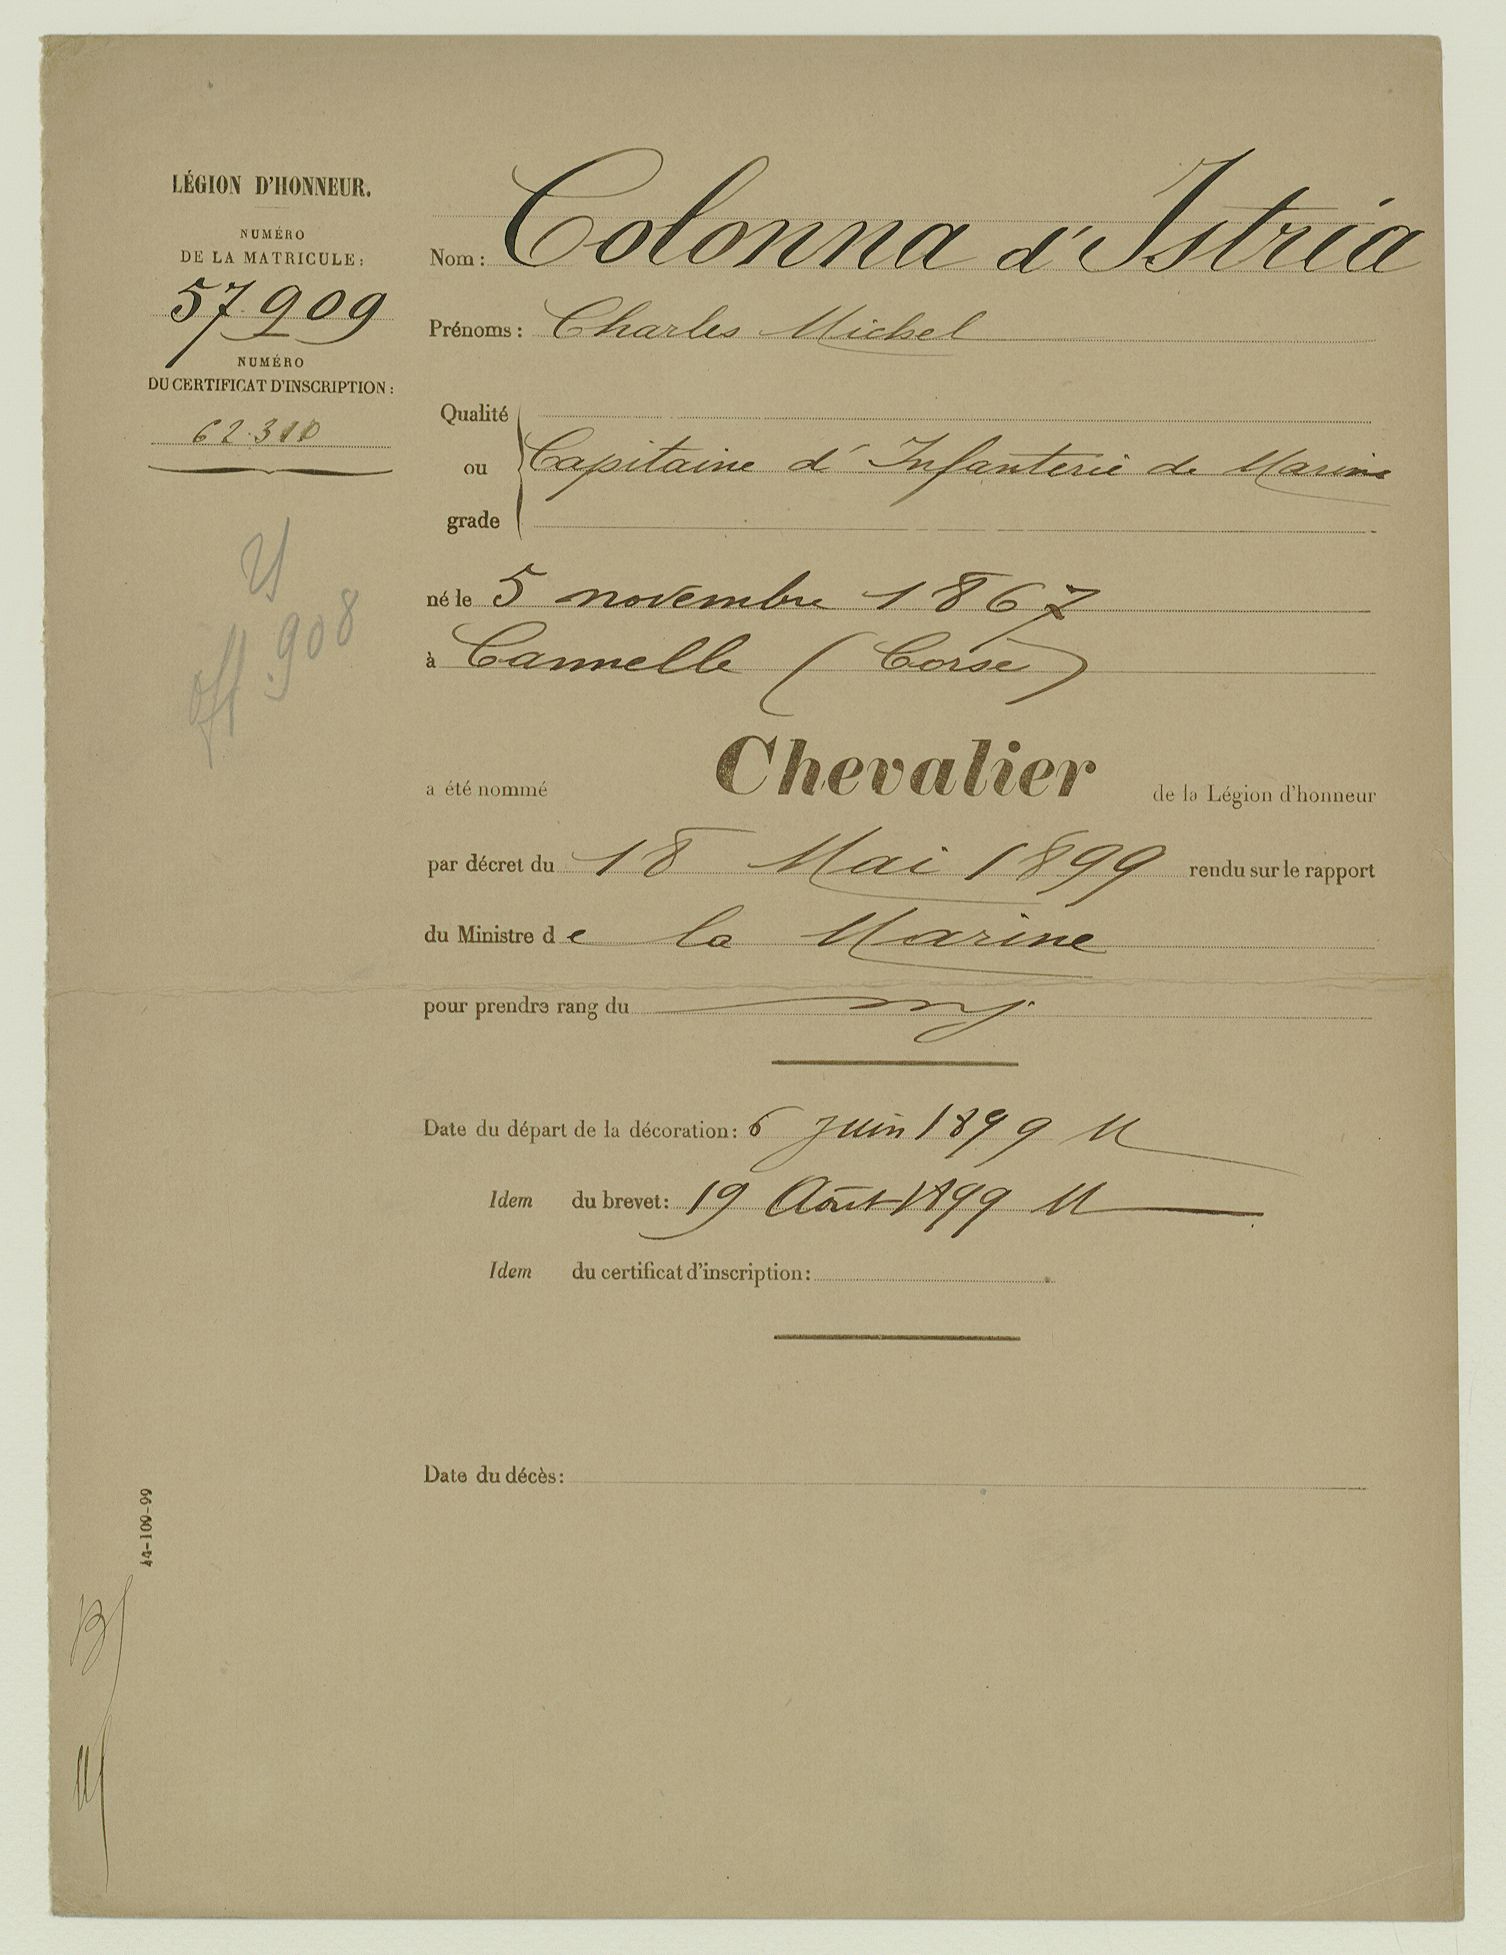 LÉGION D'HONNEUR.
NUMÉRO
DE LA MATRICULE:
57.909
NUMÉRO
DU CERTIFICAT D'INSCRIPTION:
62.310
off. 908
Nom: Colonna d'Istria
Prénoms: Charles Michel
Qualité
ou
grade
Capitaine d'Infanterie de Marine
né le 5 novembre 1867
à Cannelle (Corse)
a été nommé Chevalier de la Légion d'honneur
par décret du 18 Mai 1899 rendu sur le rapport
du Ministre de la Marine
pour prendre rang du
Date du départ de la décoration: 6 juin 1899
Idem du brevet: 19 Août 1899
Idem du certificat d'inscription:
Date du décès:
44-109-99